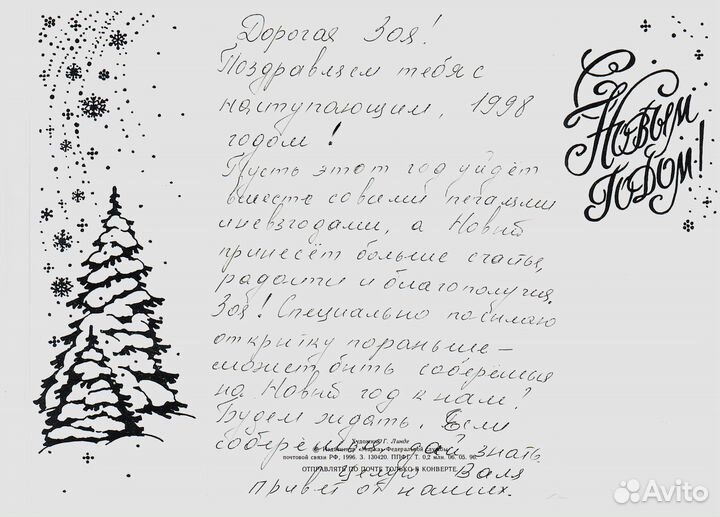 Дорогая Зоя!
Поздравляем тебя с
наступающим, 1998
годом!
Пусть этот год уйдёт
вместе со всеми печалями
и невзгодами, а Новый
принесёт больше счастья,
радости и благополучия.
Зоя! Специально посылаю
открытку пораньше –
может быть соберёшься
на Новый год к нам?
Будем ждать. Если
соберёшься дай знать
Целую Валя
Привет от наших.
С
Новым
годом!
Художник Г. Линде
© Издательство «Марка» Федеральной службы
почтовой связи РФ, 1996. З. 130420. ППФГ. Т. 0,2 млн. 06. 05. 96.
ОТПРАВЛЯТЬ ПО ПОЧТЕ ТОЛЬКО В КОНВЕРТЕ
Avito